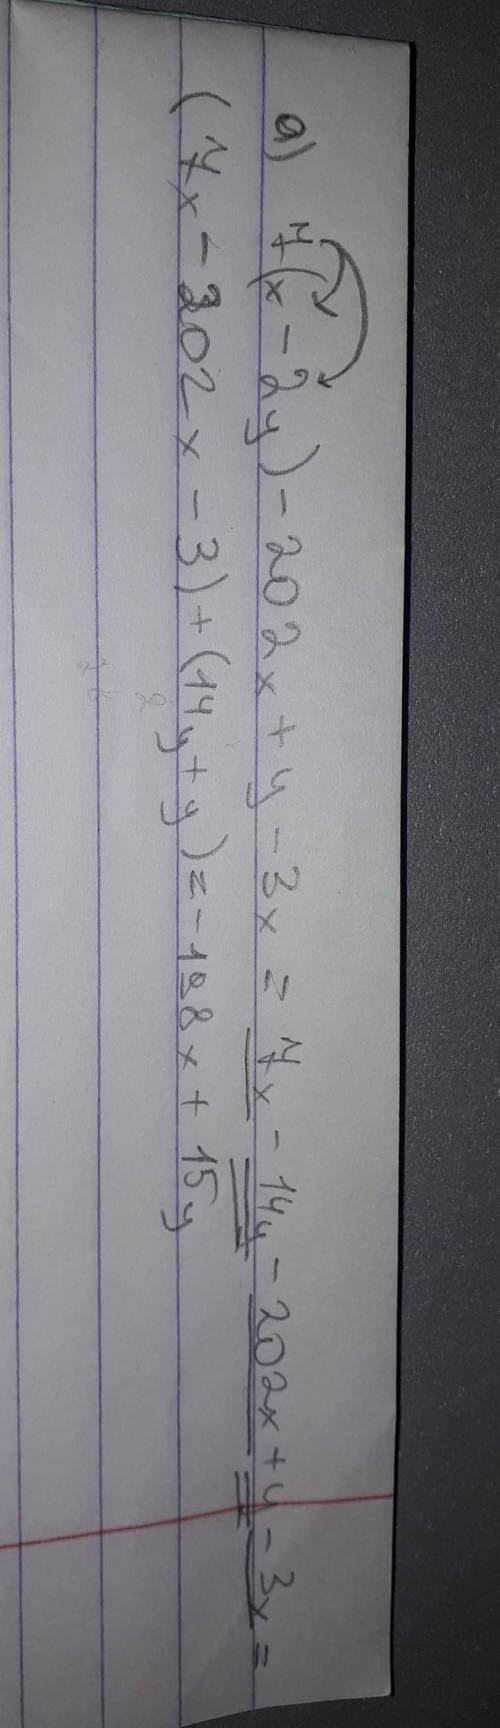 a) 7(x - 2y) - 202x + y - 3x = 7x - 14y - 202x + y - 3x =
(7x - 202x - 3) + (14y + y) = - 198x + 15y